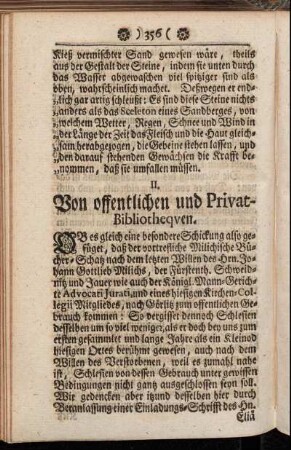 ) 356 (
Kieß vermischter Sand gewesen wäre, theils
aus der Gestalt der Steine, indem sie unten durch
das Wasser abgewaschen viel spitziger sind als
oben, wahrscheinlich machet. Deßwegen er end-
lich gar artig schleußt: Es sind diese Steine nichts
anders als das Sceleton eines Sandberges, von
welchem Wetter, Regen, Schnee und Wind in
der Länge der Zeit das Fleisch und die Haut gleich-
sam herabgezogen, die Gebeine stehen lassen, und
den darauf stehenden Gewächsen die Krafft be-
nommen, daß sie umfallen müssen.
II.
Von offentlichen und Privat-
Bibliotheqven.
OB es gleich eine besondere Schickung also ge-
füget, daß der vortrefliche Milichische Bü-
cher-Schatz nach dem letzten Willen des Hrn. Jo-
hann Gottlieb Milichs, der Fürstenth. Schweid-
nitz und Jauer wie auch der Königl. Mann-Gerich-
te Advocati Jurati, und eines hiesigen Kirchen-Col-
legii Mitgliedes, nach Görlitz zum offentlichen Ge-
brauch kommen: So vergisset dennoch Schlesien
desselbem um so viel weniger, als er doch bey uns zum
ersten gesammlet und lange Jahre als ein Kleinod
hiesigen Ortes berühmt gewesen, auch nach dem
Willen des Verstorbenen, weil es zumahl nahe
ist, Schlesien von dessen Gebrauch unter gewissen
Bedingungen nicht gantz ausgeschlossen seyn soll.
Wir gedencken aber itzund desselben hier durch
Veranlassung einer Einladungs-Schrifft des Hn.
Eliä